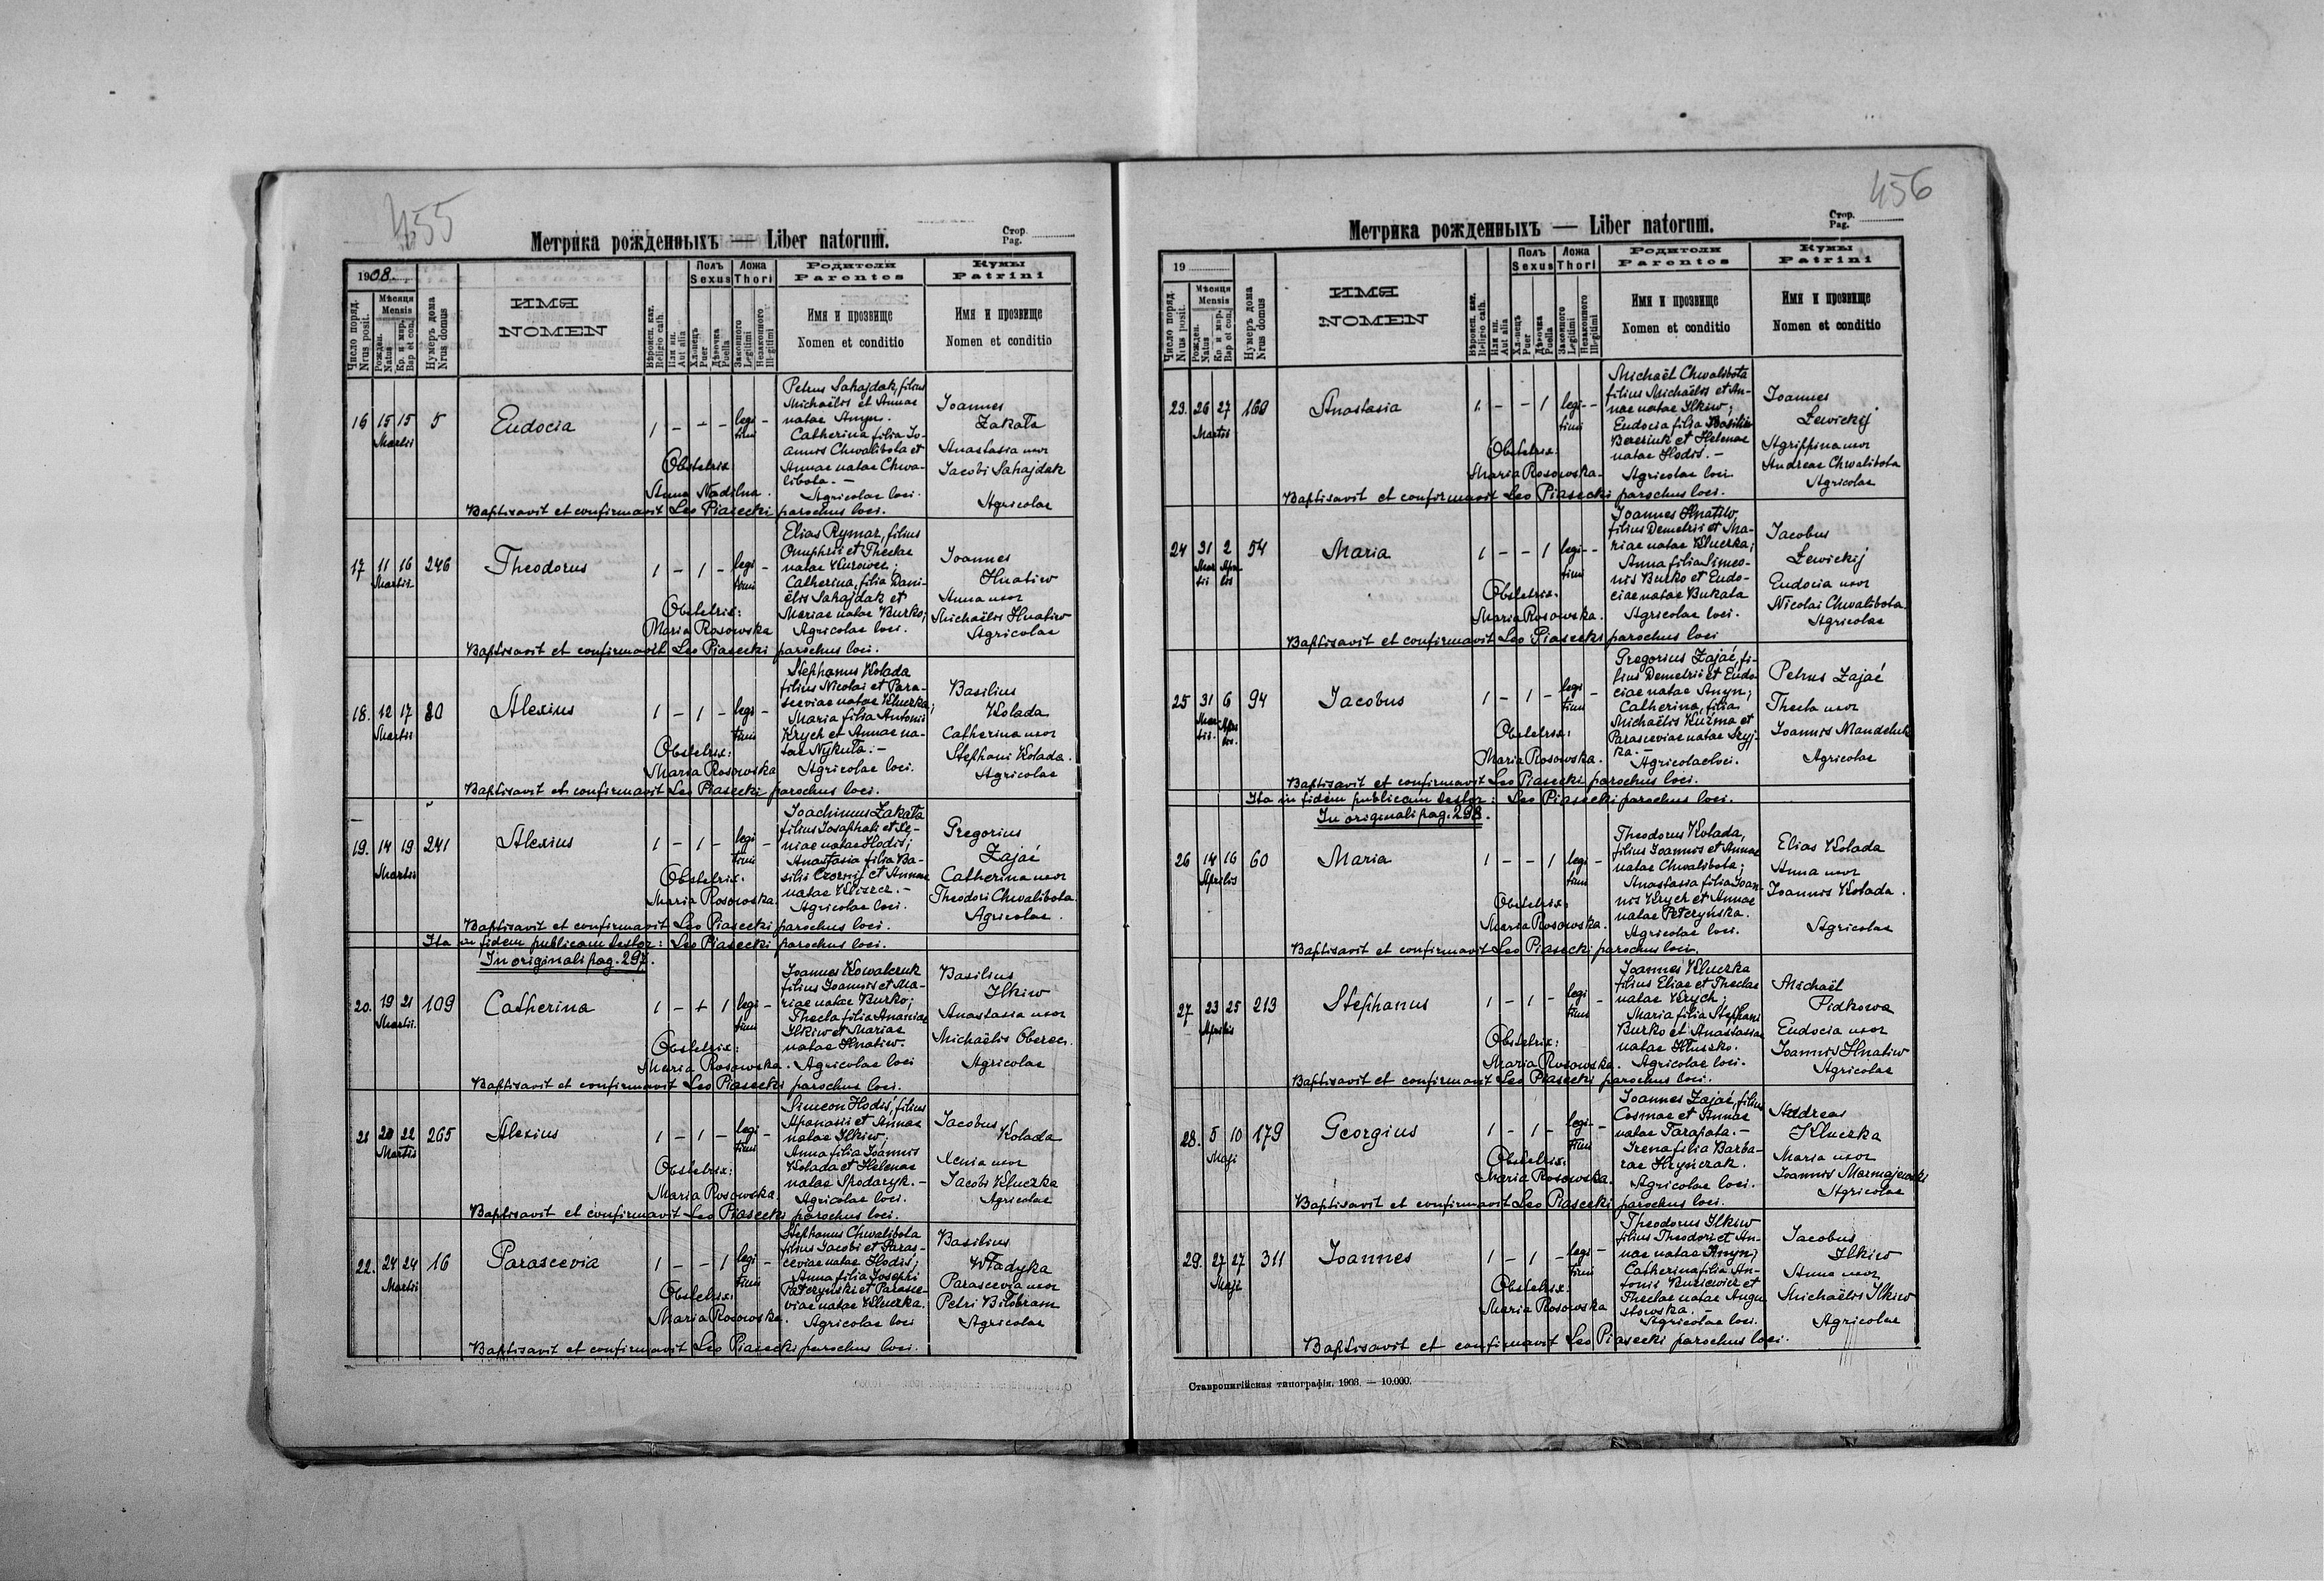 455
Метрика рожденныхъ — Liber natorum.
Стор.
Pag.
1908.
Число поряд.
Nrus posit.
Мѣсяця
Mensis
Рожден.
Natus
Кр. и мѵр.
Bap et con.
Нумеръ дома
Nrus domus
ИМЯ
NOMEN
Вѣроисп. кат.
Religio cath.
Или ин.
Aut alia
Полъ
Sexus
Хлопецъ
Puer
Дѣвочка
Puella
Ложа
Thori
Законного
Legitimi
Незаконного
Illegitimi
Родители
Parentes
Имя и прозвище
Nomen et conditio
Кумы
Patrini
Имя и прозвище
Nomen et conditio
16 15 15 5 Eudocia 1 – – – legi- –
Martii timi
Petrus Sahajdak, filius
Michaëlis et Annae
natae Amyn.
Catherina filia Jo-
annis Chwalibota et
Annae natae Chwa-
libota. –
Agricolae loci.
Joannes
Zakała
Anastasia uxor
Jacobi Sahajdak
Agricolae
Obstetrix
Anna Nadilna.
Baptisavit et confirmavit Leo Piasecki parochus loci.
17 11 16 246 Theodorus 1 – 1 – legi –
Martii timi
Elias Rymar, filius
Onuphrii et Theclae
natae Kurowec;
Catherina, filia Dani-
ëlis Sahajdak et
Mariae natae Burko;
Agricolae loci.
Joannes
Hnatiw
Anna uxor
Michaëlis Hnatiw
Agricolae
Obstetrix:
Maria Rosowska
Baptisavit et confirmavit Leo Piasecki parochus loci.
18. 12 17 80 Alexius 1 – 1 – legi –
Martii timi
Stephanus Kolada
filius Nicolai et Para-
sceviae natae Kluczka;
Maria filia Antonii
Krych et Annae na-
tae Nykuła. –
Agricolae loci.
Basilius
Kolada
Catherina uxor
Stephani Kolada.
Agricolae
Obstetrix:
Maria Rosowska
Baptisavit et confirmavit Leo Piasecki parochus loci.
19. 14 19 241 Alexius 1 – 1 – legi –
Martii timi
Joachimus Zakała
filius Josaphati et Xe-
niae natae Hodiś;
Anastasia filia Ba-
silii Czornij et Annae
natae
Agricolae loci.
Gregorius
Zajać
Catherina uxor
Theodori Chwalibota.
Agricolae.
Obstetrix.
Maria Rosowska.
Baptisavit et confirmavit Leo Piasecki parochus loci.
Ita in fidem publicam testor: Leo Piasecki parochus loci.
In originali pag. 297.
20. 19 21 109 Catherina 1 – + 1 legi –
Martii. timi
Joannes Kowalczuk
filius Joannis et Ma-
riae natae Burko;
Thecla filia Ananiae
Ilkiw et Mariae
natae Hnatiw.
Agricolae loci
Basilius
Ilkiw
Anastasia uxor
Michaëlis Oberec.
Agricolae
Obstetrix:
Maria Rosowska.
Baptisavit et confirmavit Leo Piasecki parochus loci.
21 20 22 265 Alexius 1 – 1 – legi –
Martii timi
Simeon Hodiś, filius
Aphanasii et Annae
natae Ilkiw;
Anna filia Joannis
Kolada et Helenae
natae Spodaryk. –
Agricolae loci.
Jacobus
Kolada
Xenia uxor
Jacobi Kluczka
Agricolae
Obstetrix:
Maria Rosowska.
Baptisavit et confirmavit Leo Piasecki parochus loci.
22. 24 24 16 Parascevia 1 – – 1 legi –
Martii timi
Stephanus Chwalibota
filius Jacobi et Paras-
ceviae natae Hodiś;
Anna filia Josephi
Peteryński et Parasce-
viae natae Kluczka.
Agricolae loci
Basilius
Władyka
Parascevia uxor
Petri Biłobram
Agricolae
Obstetrix:
Maria Rosowska.
Baptisavit et confirmavit Leo Piasecki parochus loci.
456
Метрика рожденныхъ — Liber natorum.
Стор.
Pag.
19
Число поряд.
Nrus posit.
Мѣсяця
Mensis
Рожден.
Natus
Кр. и мѵр.
Bap et con.
Нумеръ дома
Nrus domus
ИМЯ
NOMEN
Вѣроисп. кат.
Religio cath.
Или ин.
Aut alia
Полъ
Sexus
Хлопецъ
Puer
Дѣвочка
Puella
Ложа
Thori
Законного
Legitimi
Незаконного
Illegitimi
Родители
Parentes
Имя и прозвище
Nomen et conditio
Кумы
Patrini
Имя и прозвище
Nomen et conditio
23. 26 27 160 Anastasia 1. – – 1 legi- –
Martii timi
Michaël Chwalibota
filius Michaëlis et An-
nae natae Ilkiw;
Eudocia filia Basilii
Bereziuk et Helenae
natae Hodiś. –
Agricolae loci
Joannes
Lewickij
Agrippina uxor
Andreae Chwalibota
Agricolae
Obstetrix.
Maria Rosowska.
Baptisavit et confirmavit Leo Piasecki parochus loci.
24 31 2 54 Maria 1 – – 1 legi- –
Mar Apri
tii lis timi
Joannes Hnatiw,
filius Demetrii et Ma-
riae natae Kluczka;
Anna filia Simeo-
nis Burko et Eudo-
ciae natae Bukała
Agricolae loci.
Jacobus
Lewickij
Eudocia uxor
Nicolai Chwalibota.
Agricolae
Obstetrix.
Maria Rosowska.
Baptisavit et confirmavit Leo Piasecki parochus loci
25 31 6 94 Jacobus 1 – 1 – legi –
Mar Apri
tii. lis. timi
Gregorius Zajać, fi-
lius Demetrii et Eudo-
ciae natae Amyn;
Catherina, filia
Michaëlis Kuźma et
Parasceviae natae
ka. –
Agricolae loci.
Petrus Zajać
Thecla uxor
Joannis Mandeluk
Agricolae
Obstetrix:
Maria Rosowska.
Baptisavit et confirmavit Leo Piasecki parochus loci.
Ita in fidem publicam testor: Leo Piasecki parochus loci.
In originali pag. 298.
26 14 16 60 Maria 1 – – 1 legi –
Aprilis timi
Theodorus Kolada,
filius Joannis et Annae
natae Chwalibota;
Anastasia filia Joan-
nis Krych et Annae
natae Peteryńska.
Agricolae loci.
Elias Kolada
Anna uxor
Joannis Kolada.
Agricolae
Obstetrix:
Maria Rosowska.
Baptisavit et confirmavit Leo Piasecki parochus loci.
27 23 25 219 Stephanus 1 – 1 – legi –
Aprilis timi
Joannes Kluczka
filius Eliae et Theclae
natae Krych;
Maria filia Stephani
Burko et Anastasiae
natae Hłuszko.
Agricolae loci.
Michaël
Pidkowa
Eudocia uxor
Joannis Hnatiw
Agricolae
Obstetrix:
Maria Rosowska.
Baptisavit et confirmavit Leo Piasecki parochus loci.
28. 5 10 179 Georgius 1 – 1 – legi- –
Maji timi
Joannes Zajać, filius
Cosmae et Annae
natae Tarapata. –
Irena filia Barba-
rae Hryńczak.
Agricolae loci.
Andreas
Kluczka
Maria uxor
Joannis Marmajewski
Agricolae
Obstetrix:
Maria Rosowska.
Baptisavit et confirmavit Leo Piasecki parochus loci.
29. 27 27 311 Joannes 1 – 1 – legi –
Maji timi
Theodorus Ilkiw
filius Theodori et An-
nae natae Amyn;
Catherina filia An-
tonii et
Theclae natae Augu
stowska. –
Agricolae loci.
Jacobus
Ilkiw
Anna uxor
Michaëlis Ilkiw
Agricolae
Obstetrix.
Maria Rosowska
Baptisavit et confirmavit Leo Piasecki parochus loci.
Ставропигійская типографія. 1903. — 10.000.